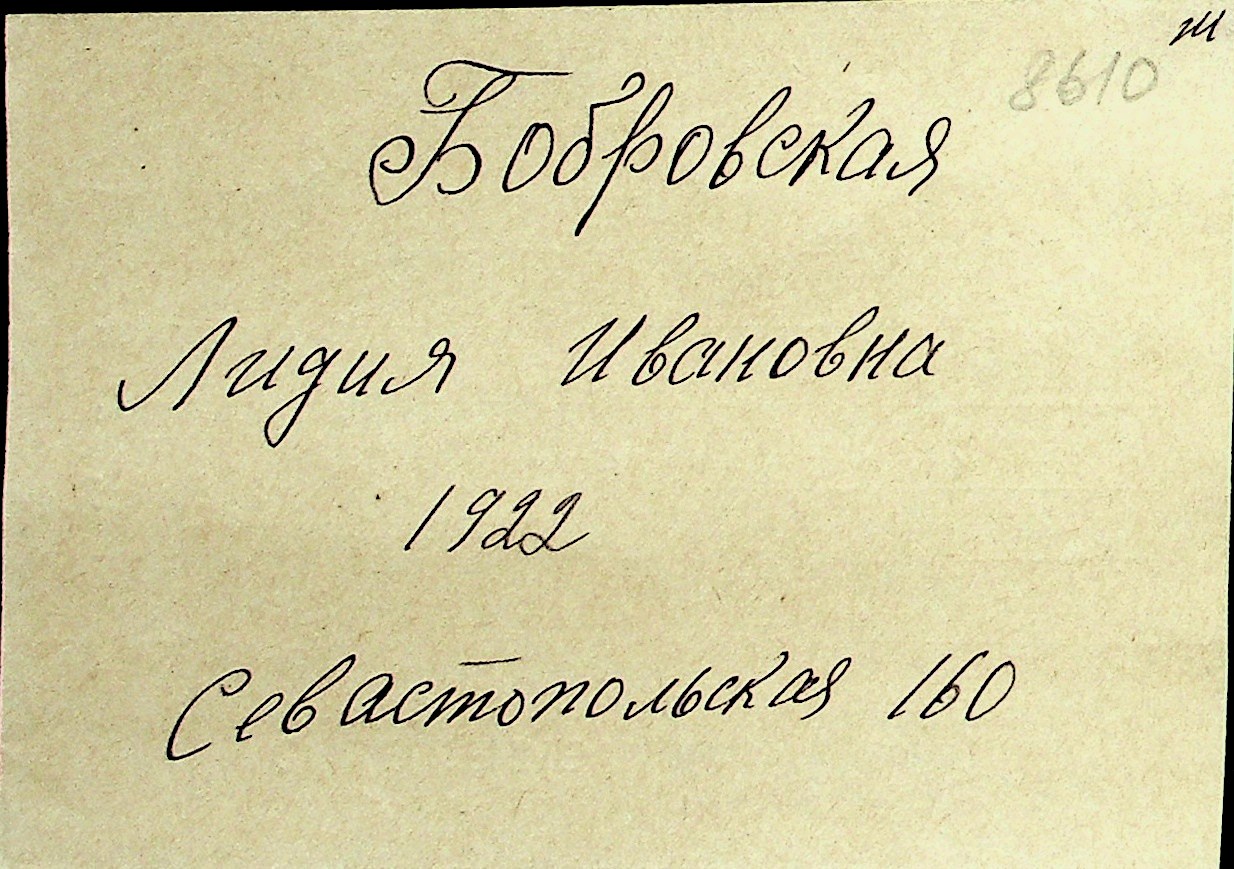 ж
8610
Бобровская
Лидия Ивановна
1922
Севастопольская 160